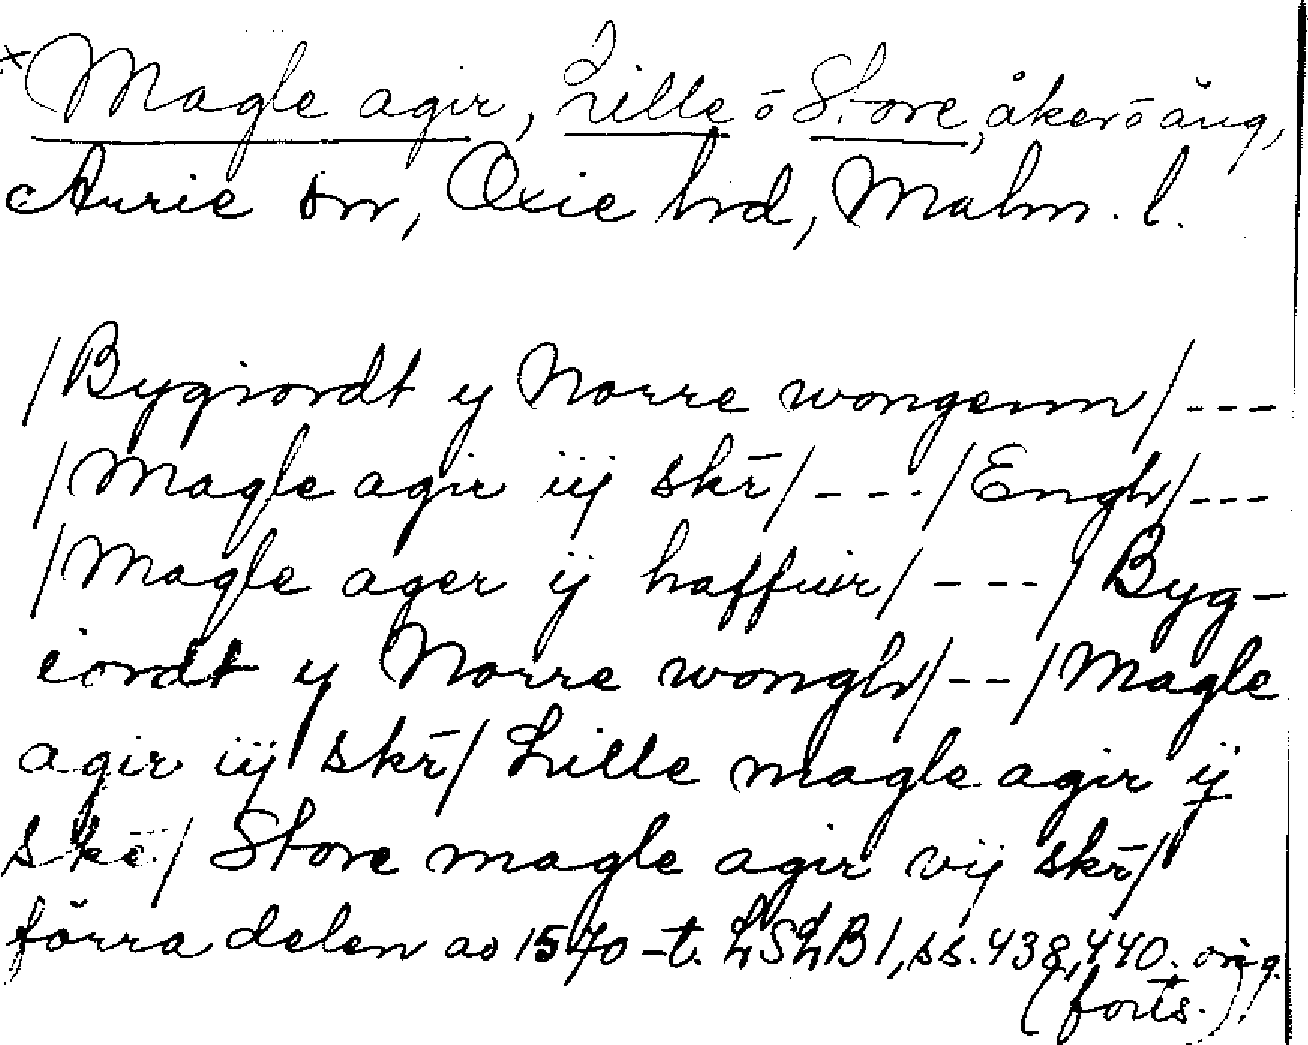 × Magle agir, Lille o Store, åker o äng,
Aurie sn, Oxie hrd, Malm. l.
/Bygiordt y Norre wongenn/---
/Magle agir iij skr̄/---./Engh/---
/Magle ager ij haffuir/---/Byg-
iordt y Norre wongh/--/Magle
agir iij skr̄/ Lille magle agir ij
skē./ Store magle agir vij skr̄/
förra delen av 1570-t. LSLB1, ss. 438, 440. orig.
(forts.)!